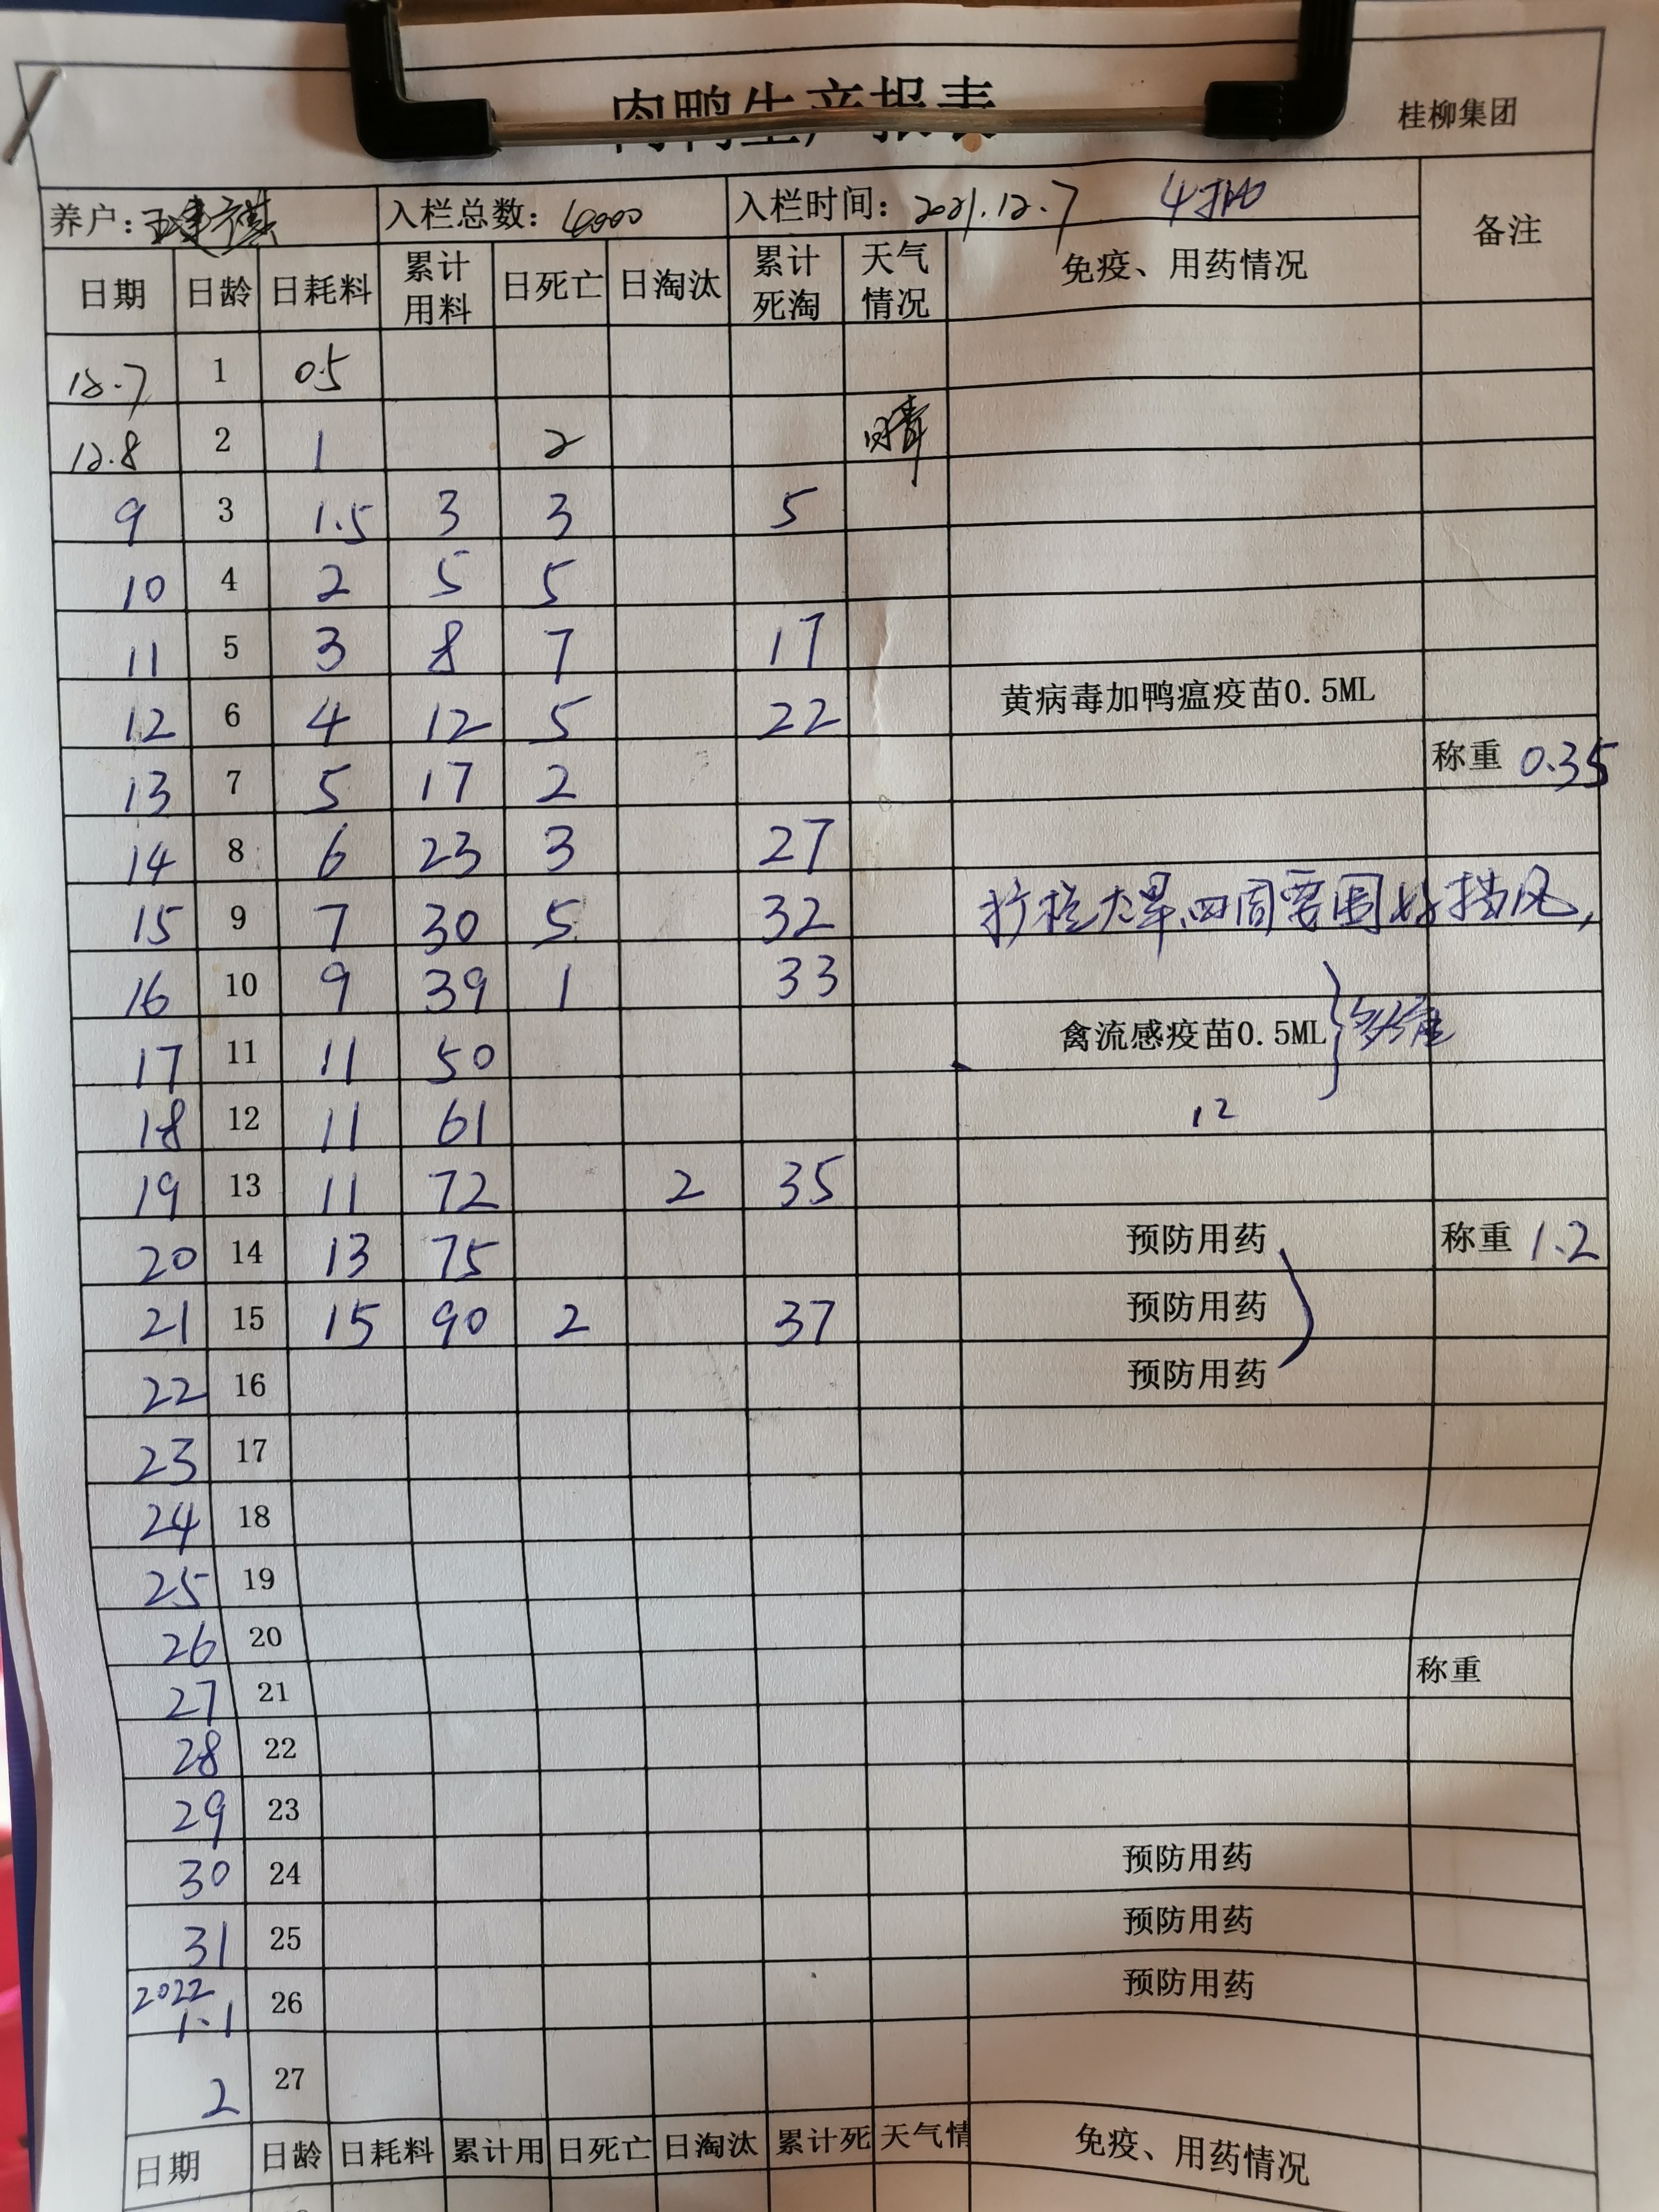 肉鸭生产报表
桂柳集团
养户: 入栏总数: 4000 入栏时间: 2021.12.7 4 备注
日期 日龄 日耗料 累计用料 日死亡 日淘汰 累计死淘 天气情况 免疫、用药情况
12.7 1 0.5
12.8 2 1 2 晴
9 3 1.5 3 3 5
10 4 2 5 5
11 5 3 8 7 17
12 6 4 12 5 22 黄病毒加鸭瘟疫苗0.5ML
13 7 5 17 2 称重 0.35
14 8 6 23 3 27
15 9 7 30 5 32 扩栏大旱四周要围好挡风,
16 10 9 39 1 33
17 11 11 50 禽流感疫苗0.5ML 多维
18 12 11 61 12
19 13 11 72 2 35
20 14 13 75 预防用药 称重 1.2
21 15 15 90 2 37 预防用药
22 16 预防用药
23 17
24 18
25 19
26 20
27 21 称重
28 22
29 23
30 24 预防用药
31 25 预防用药
2022 1.1 26 预防用药
2 27
日期 日龄 日耗料 累计用 日死亡 日淘汰 累计死 天气情 免疫、用药情况